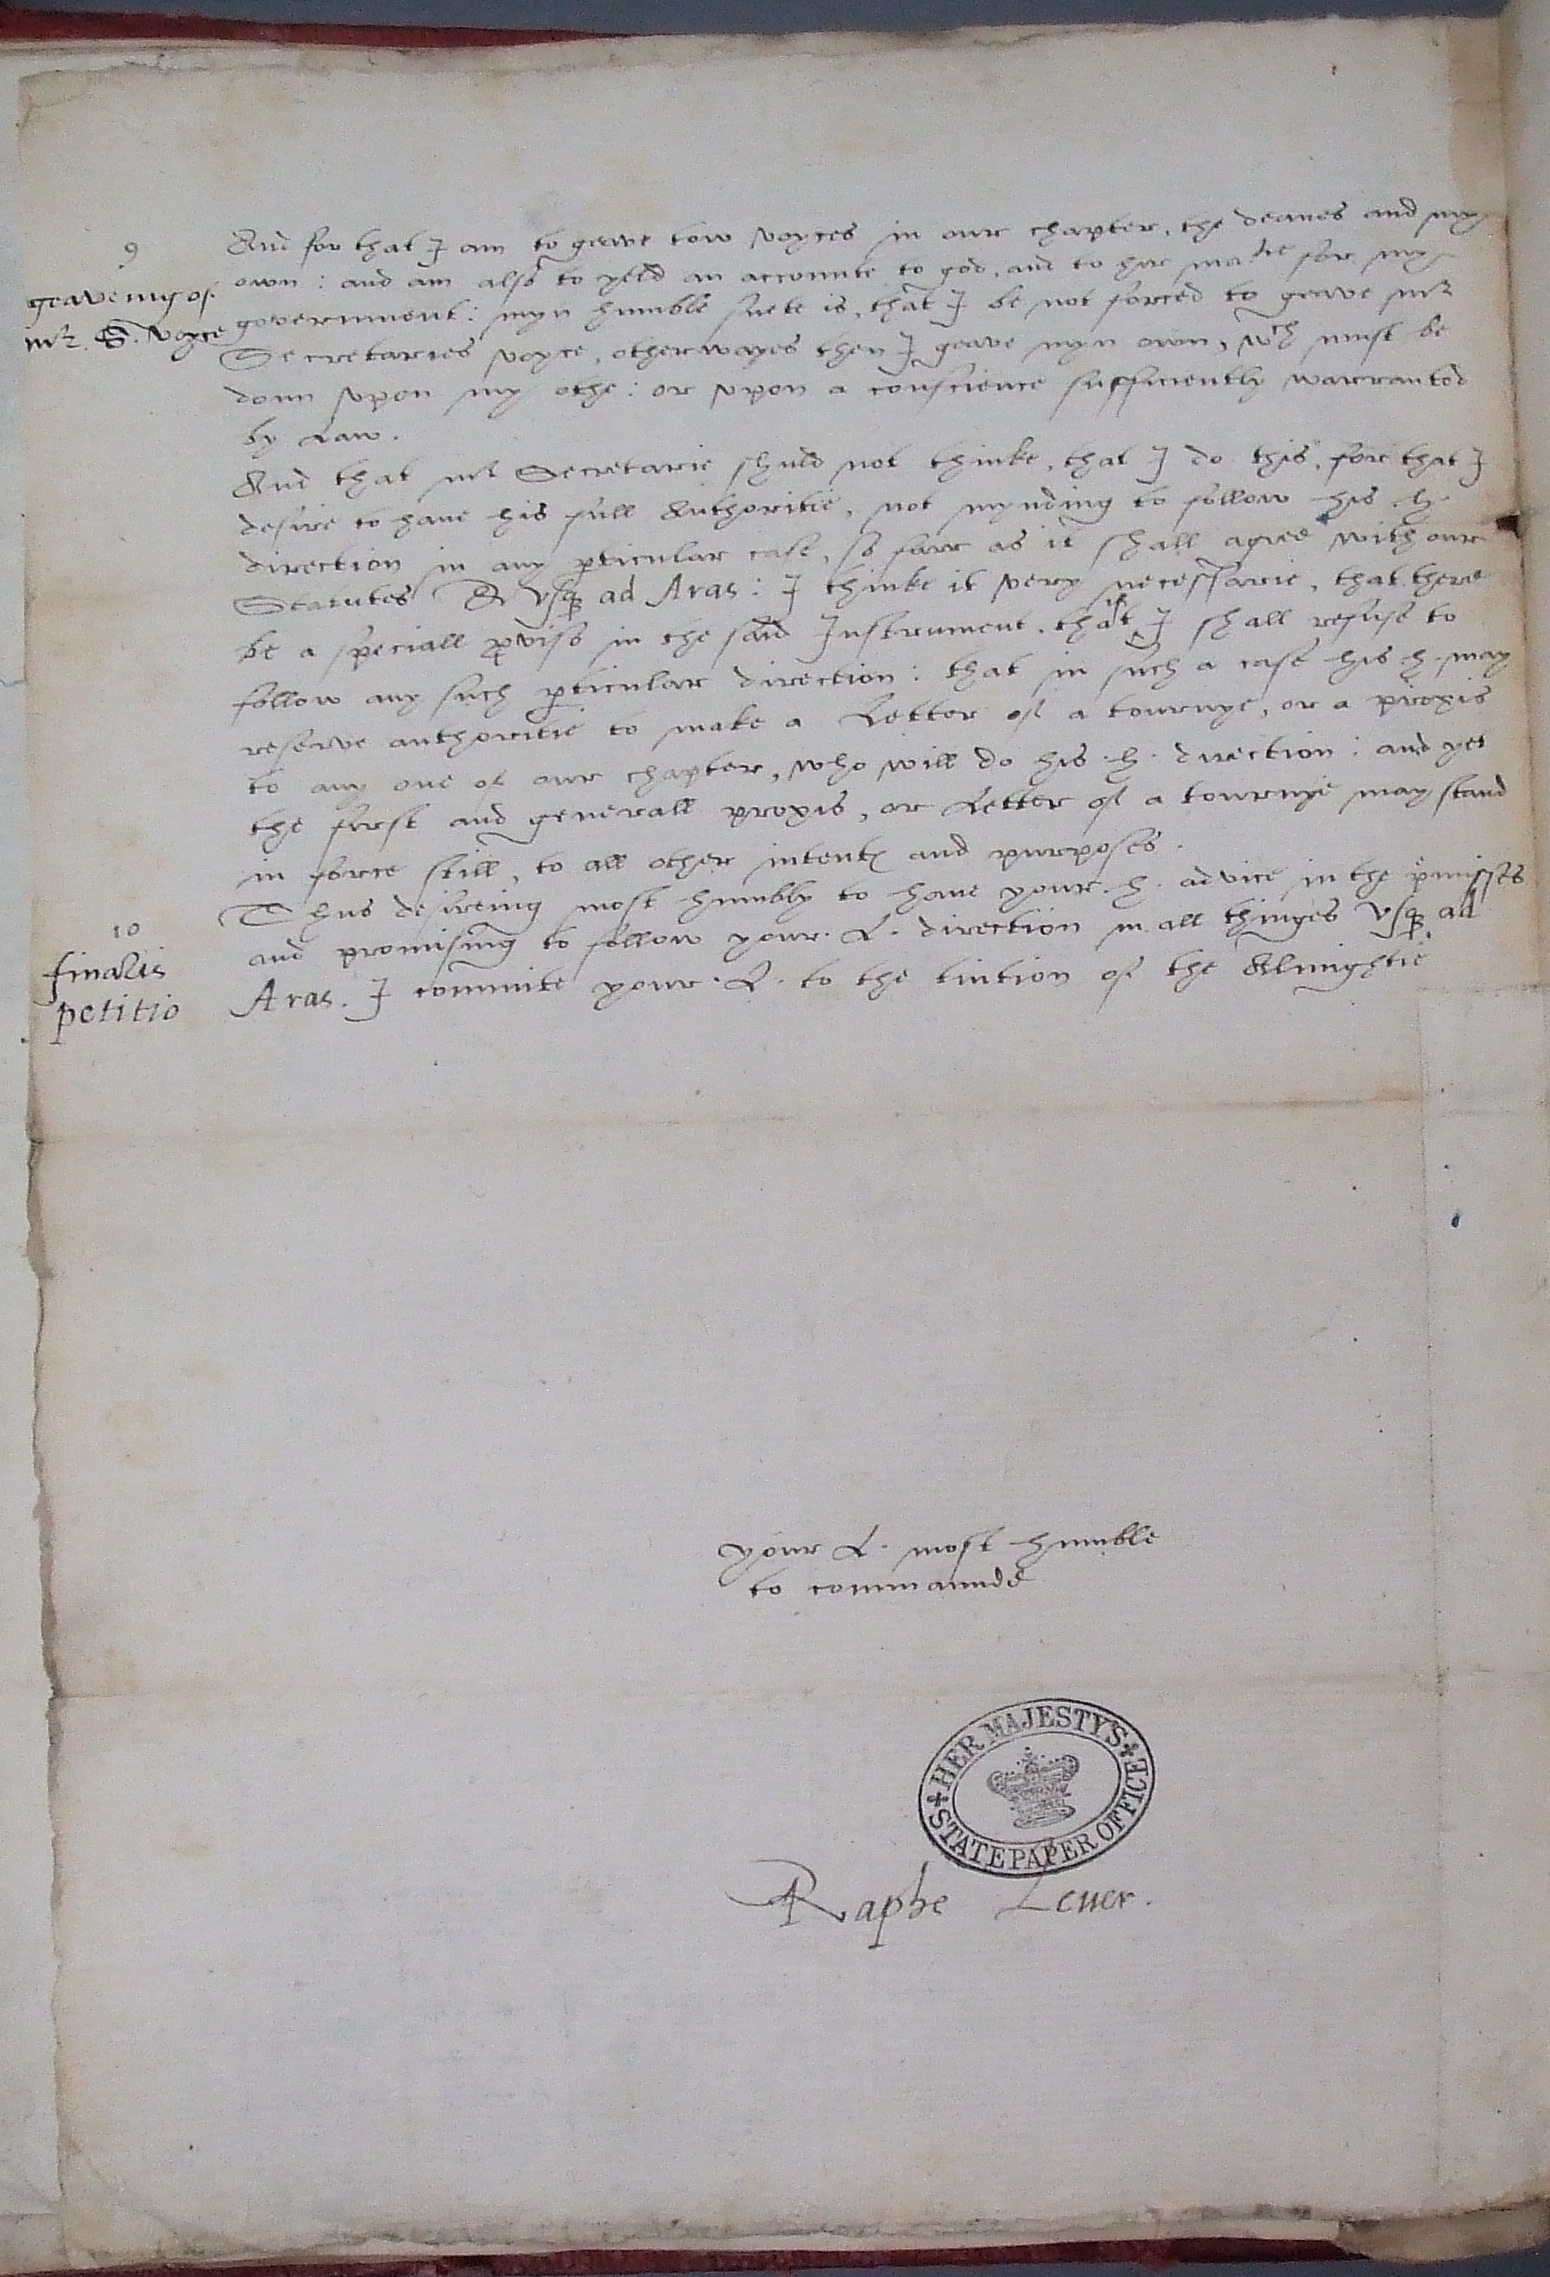 9
geaveing of
mr. S. voyce
And for that I am to geave tow voyces in our chapter, the deanes and my
own: and am also to yeld an accounte to god, and to her matie for my
government: myn humble suete is, that I be not forced to geave mr
Secretaries voyce, otherwayes then I geave myn own, wch must be
donn vpon my othe: or vpon a conscience sufficiently warranted
by Law.
And that mr Secretarie shuld not thinke, that I do this, for that I
desire to have his full Authoritie, not mynding to follow his .h.
direction in any pticular case, so farr as it shall agree with our
Statutes & vsq ad Aras: I thinke it very necessarie, that there
be a speciall pviso in the said Instrument, that if I shall refuse to
follow any such pticular direction: that in such a case his .h. may
reserve authoritie to make a Letter of a tournye, or a proxis
to any one of our chapter, who will do his .h. direction: and yet
the first and generall proxis, or Letter of a tournye may stand
in force still, to all other intents and purposes.
10
finalis
petitio
Thus desireing most humbly to have your .h. advice in the pmisses
and promising to follow your .L. direction in all thinges vsq ad
Aras. I committe your .L. to the tuition of the Almightie
your L. most humble
to commaunde
HER MAJESTY'S
STATE PAPER OFFICE
Raphe Lever.